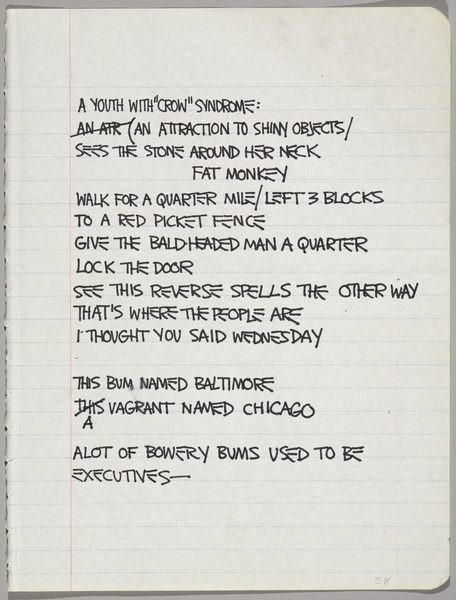 A YOUTH WITH "CROW" SYNDROME:
AN AIR (AN ATTRACTION TO SHINY OBJECTS/
SEES THE STONE AROUND HER NECK
FAT MONKEY
WALK FOR A QUARTER MILE/LEFT 3 BLOCKS
TO A RED PICKET FENCE
GIVE THE BALDHEADED MAN A QUARTER
LOCK THE DOOR
SEE THIS REVERSE SPELLS THE OTHER WAY
THAT'S WHERE THE PEOPLE ARE
I THOUGHT YOU SAID WEDNESDAY
THIS BUM NAMED BALTIMORE
THIS VAGRANT NAMED CHICAGO
A
ALOT OF BOWERY BUMS USED TO BE
EXECUTIVES—
E8